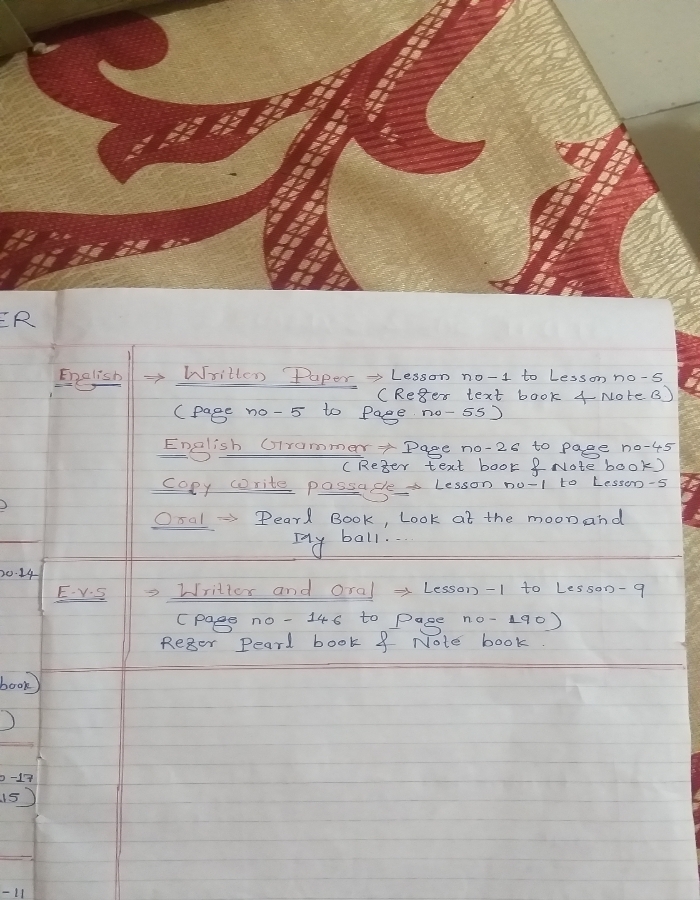 ER
English → Written Paper → Lesson no-1 to Lesson no-5
(Refer text book & Note B)
(page no-5 to page no-55)
English Grammer → Page no-26 to page no-45
(Refer text book & Note book)
Copy write passage → Lesson no-1 to Lesson-5
Oral → Pearl Book, Look at the moon and
My ball...
no.14
E.V.S → Written and Oral → Lesson-1 to Lesson-9
(page no - 146 to page no-190)
Refer Pearl book & Note book.
book)
)
-17
15)
-11